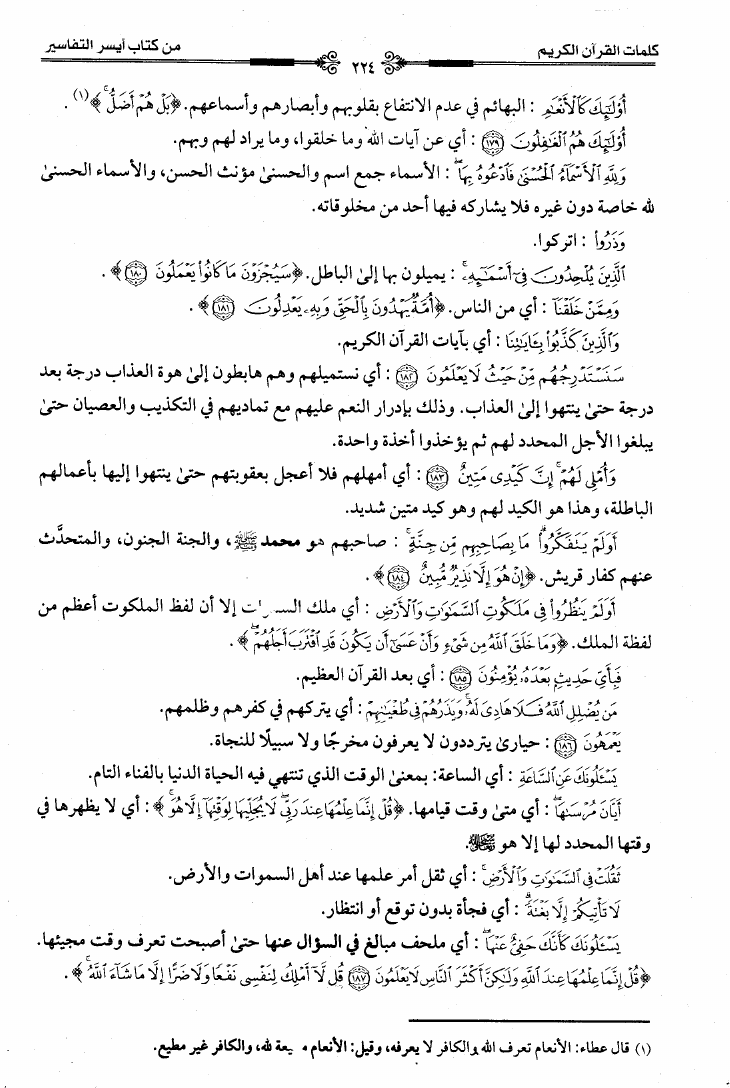 كلمات القرآن الكريم ٢٢٤ من كتاب أيسر التفاسير
أُوْلَٰٓئِكَ كَٱلْأَنْعَٰمِ : البهائم في عدم الانتفاع بقلوبهم وأبصارهم وأسماعهم. ﴿بَلْ هُمْ أَضَلُّ ۚ﴾(١) .
أُوْلَٰٓئِكَ هُمُ ٱلْغَٰفِلُونَ ١٧٩ : أي عن آيات الله وما خلقوا، وما يراد لهم وبهم.
وَلِلَّهِ ٱلْأَسْمَآءُ ٱلْحُسْنَىٰ فَٱدْعُوهُ بِهَا ۖ : الأسماء جمع اسم والحسنىٰ مؤنث الحسن، والأسماء الحسنىٰ
لله خاصة دون غيره فلا يشاركه فيها أحد من مخلوقاته.
وَذَرُوا۟ : اتركوا.
ٱلَّذِينَ يُلْحِدُونَ فِىٓ أَسْمَٰٓئِهِۦ ۚ : يميلون بها إلىٰ الباطل. ﴿سَيُجْزَوْنَ مَا كَانُوا۟ يَعْمَلُونَ ١٨٠﴾ .
وَمِمَّنْ خَلَقْنَآ : أي من الناس. ﴿أُمَّةٌ يَهْدُونَ بِٱلْحَقِّ وَبِهِۦ يَعْدِلُونَ ١٨١﴾ .
وَٱلَّذِينَ كَذَّبُوا۟ بِـَٔايَٰتِنَا : أي بآيات القرآن الكريم.
سَنَسْتَدْرِجُهُم مِّنْ حَيْثُ لَا يَعْلَمُونَ ١٨٢ : أي نستميلهم وهم هابطون إلىٰ هوة العذاب درجة بعد
درجة حتىٰ ينتهوا إلىٰ العذاب. وذلك بإدرار النعم عليهم مع تماديهم في التكذيب والعصيان حتىٰ
يبلغوا الأجل المحدد لهم ثم يؤخذوا أخذة واحدة.
وَأُمْلِى لَهُمْ ۚ إِنَّ كَيْدِى مَتِينٌ ١٨٣ : أي أمهلهم فلا أعجل بعقوبتهم حتىٰ ينتهوا إليها بأعمالهم
الباطلة، وهذا هو الكيد لهم وهو كيد متين شديد.
أَوَلَمْ يَتَفَكَّرُوا۟ ۗ مَا بِصَاحِبِهِم مِّن جِنَّةٍ ۚ : صاحبهم هو محمد ﷺ، والجنة الجنون، والمتحدَّث
عنهم كفار قريش. ﴿إِنْ هُوَ إِلَّا نَذِيرٌ مُّبِينٌ ١٨٤﴾ .
أَوَلَمْ يَنظُرُوا۟ فِى مَلَكُوتِ ٱلسَّمَٰوَٰتِ وَٱلْأَرْضِ : أي ملك إلا أن لفظ الملكوت أعظم من
لفظة الملك. ﴿وَمَا خَلَقَ ٱللَّهُ مِن شَىْءٍ وَأَنْ عَسَىٰٓ أَن يَكُونَ قَدِ ٱقْتَرَبَ أَجَلُهُمْ ۖ﴾ .
فَبِأَىِّ حَدِيثٍۭ بَعْدَهُۥ يُؤْمِنُونَ ١٨٥ : أي بعد القرآن العظيم.
مَن يُضْلِلِ ٱللَّهُ فَلَا هَادِىَ لَهُۥ ۚ وَيَذَرُهُمْ فِى طُغْيَٰنِهِمْ : أي يتركهم في كفرهم وظلمهم.
يَعْمَهُونَ ١٨٦ : حيارىٰ يترددون لا يعرفون مخرجًا ولا سبيلًا للنجاة.
يَسْـَٔلُونَكَ عَنِ ٱلسَّاعَةِ : أي الساعة: بمعنىٰ الوقت الذي تنتهي فيه الحياة الدنيا بالفناء التام.
أَيَّانَ مُرْسَىٰهَا ۖ : أي متىٰ وقت قيامها. ﴿قُلْ إِنَّمَا عِلْمُهَا عِندَ رَبِّى ۖ لَا يُجَلِّيهَا لِوَقْتِهَآ إِلَّا هُوَ ۚ﴾ : أي لا يظهرها في
وقتها المحدد لها إلا هو
ثَقُلَتْ فِى ٱلسَّمَٰوَٰتِ وَٱلْأَرْضِ ۚ : أي ثقل أمر علمها عند أهل السموات والأرض.
لَا تَأْتِيكُمْ إِلَّا بَغْتَةً ۗ : أي فجأة بدون توقع أو انتظار.
يَسْـَٔلُونَكَ كَأَنَّكَ حَفِىٌّ عَنْهَا ۖ : أي ملحف مبالغ في السؤال عنها حتىٰ أصبحت تعرف وقت مجيئها.
﴿قُلْ إِنَّمَا عِلْمُهَا عِندَ ٱللَّهِ وَلَٰكِنَّ أَكْثَرَ ٱلنَّاسِ لَا يَعْلَمُونَ ١٨٧ قُل لَّآ أَمْلِكُ لِنَفْسِى نَفْعًا وَلَا ضَرًّا إِلَّا مَا شَآءَ ٱللَّهُ ۚ﴾ .
(١) قال عطاء: الأنعام تعرف الله والكافر لا يعرفه، وقيل: الأنعام لله، والكافر غير مطيع.